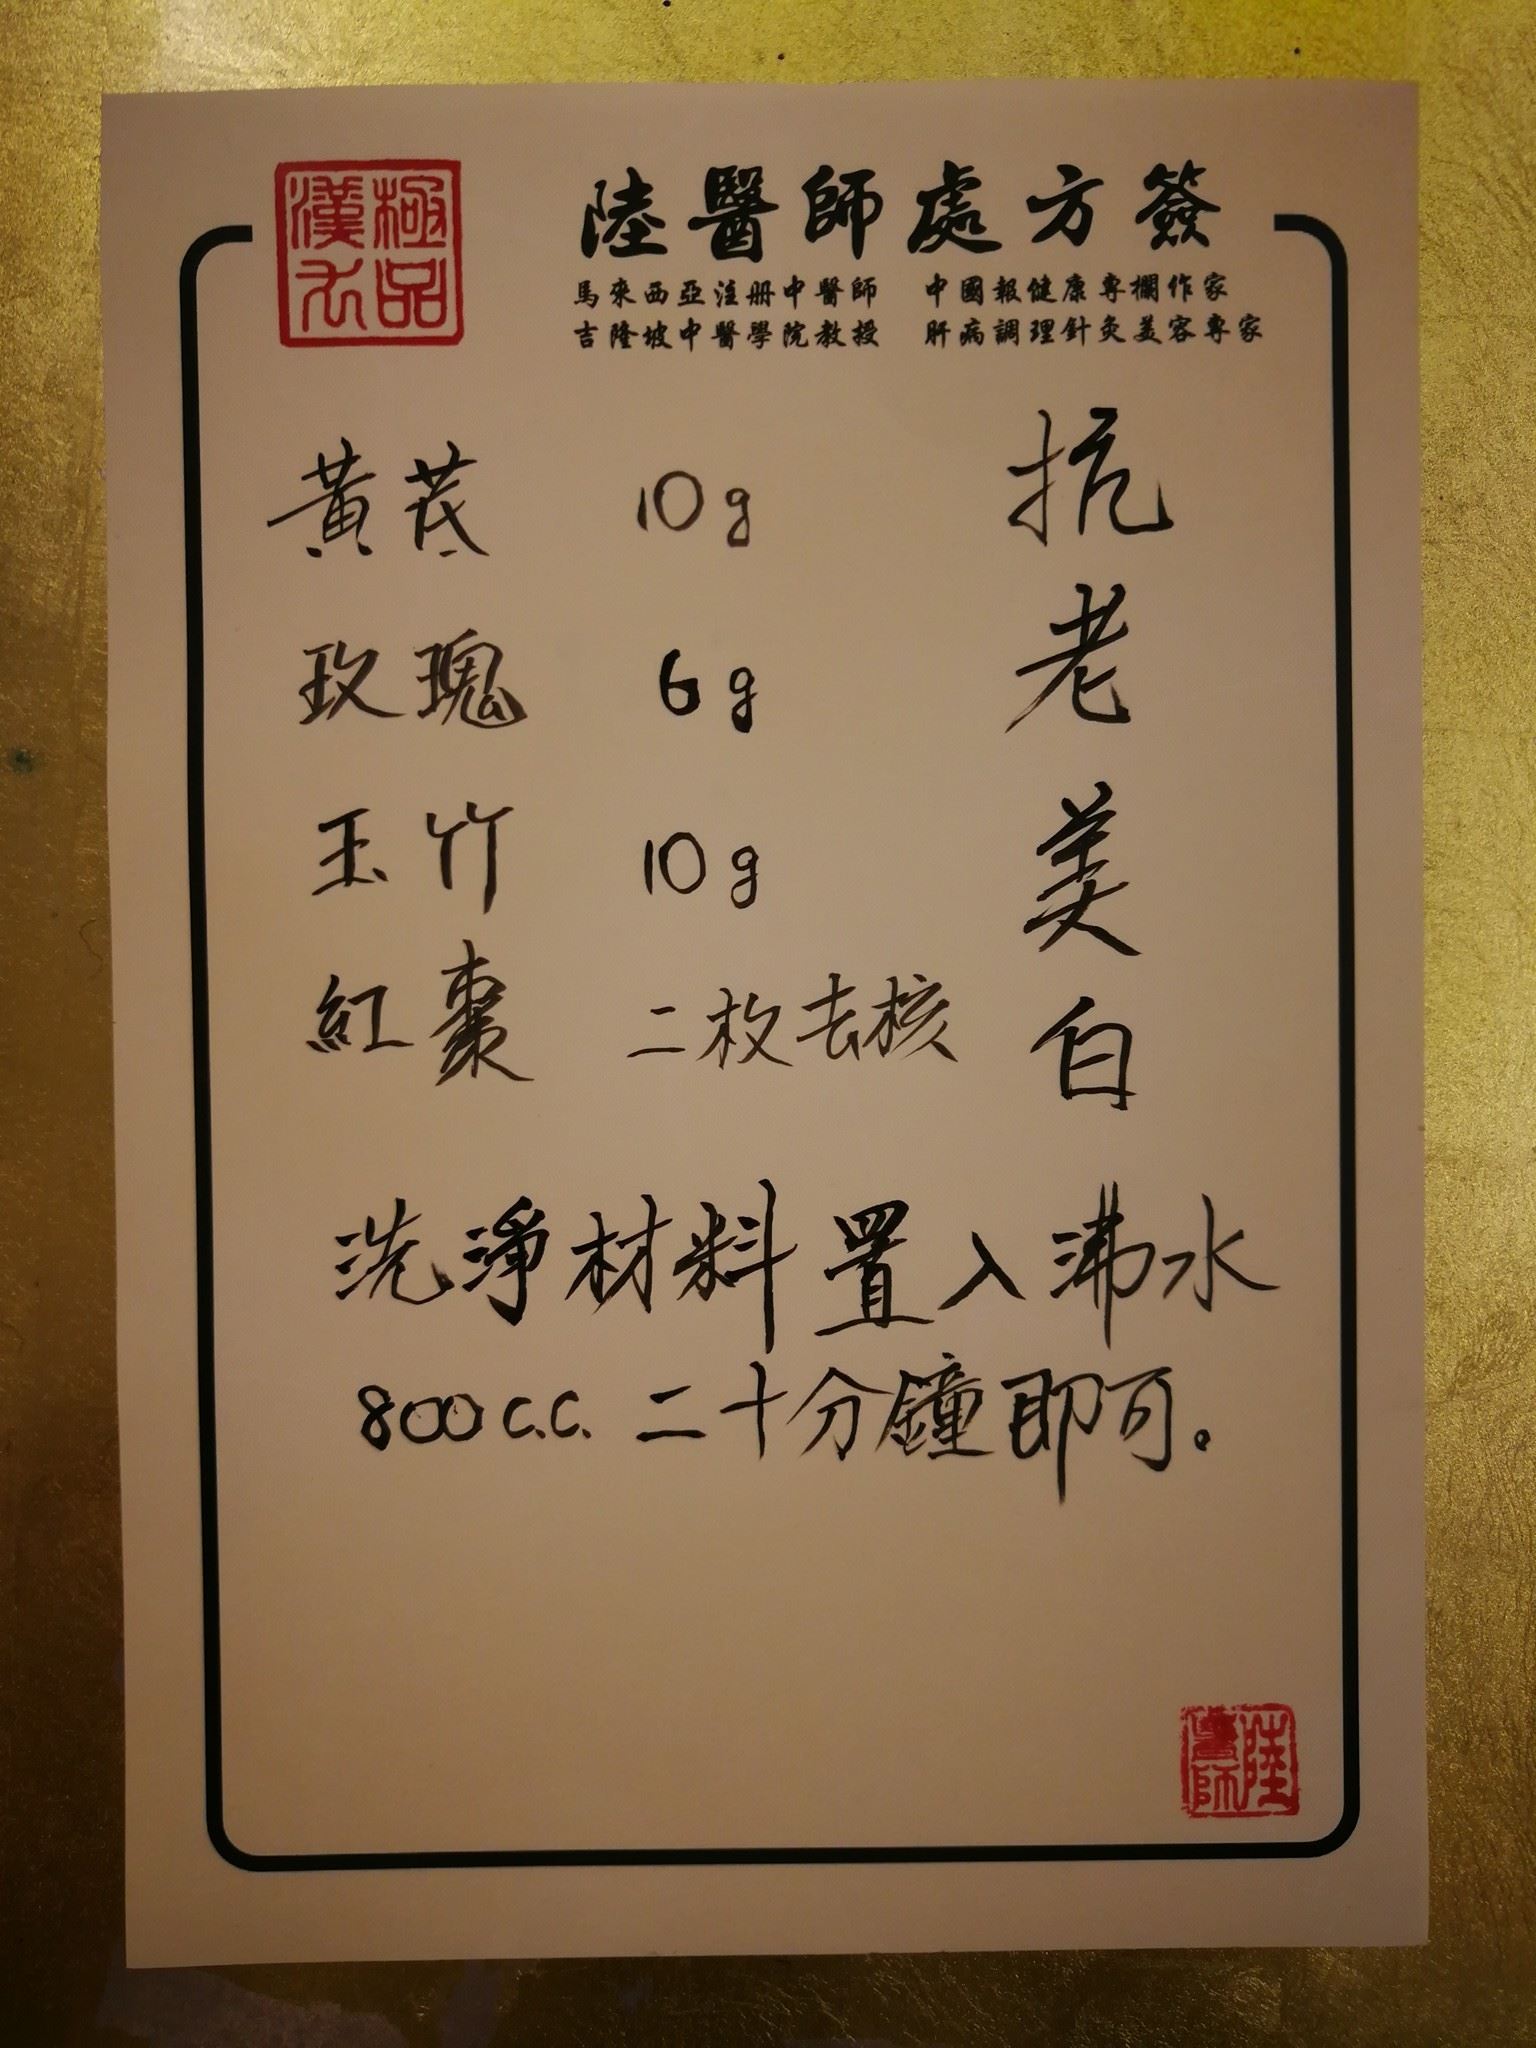 極品
漢方
陸醫師處方簽
馬來西亞注册中醫師 中國報健康專欄作家
吉隆坡中醫學院教授 肝病調理針灸美容專家
抗老美白
黃茋 10g
玫瑰 6g
玉竹 10g
紅棗 二枚去核
洗淨材料置入沸水
800c.c.二十分鐘即可。
陸
醫師